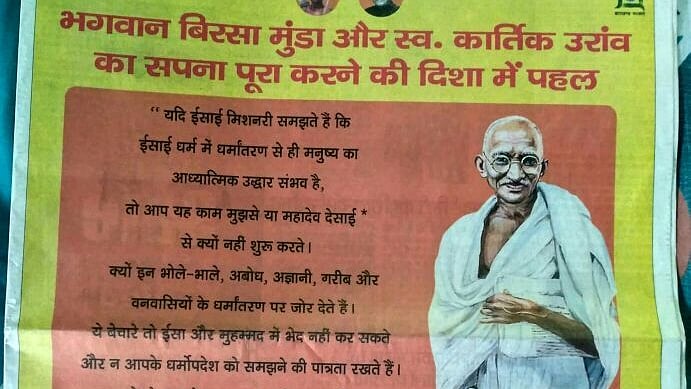 भगवान बिरसा मुंडा और स्व. कार्तिक उरांव
का सपना पूरा करने की दिशा में पहल
“ यदि ईसाई मिशनरी समझते हैं कि
ईसाई धर्म में धर्मांतरण से ही मनुष्य का
आध्यात्मिक उद्धार संभव है,
तो आप यह काम मुझसे या महादेव देसाई *
से क्यों नहीं शुरू करते।
क्यों इन भोले-भाले, अबोध, अज्ञानी, गरीब और
वनवासियों के धर्मांतरण पर जोर देते हैं।
ये बेचारे तो ईसा और मुहम्मद में भेद नहीं कर सकते
और न आपके धर्मोपदेश को समझने की पात्रता रखते हैं।